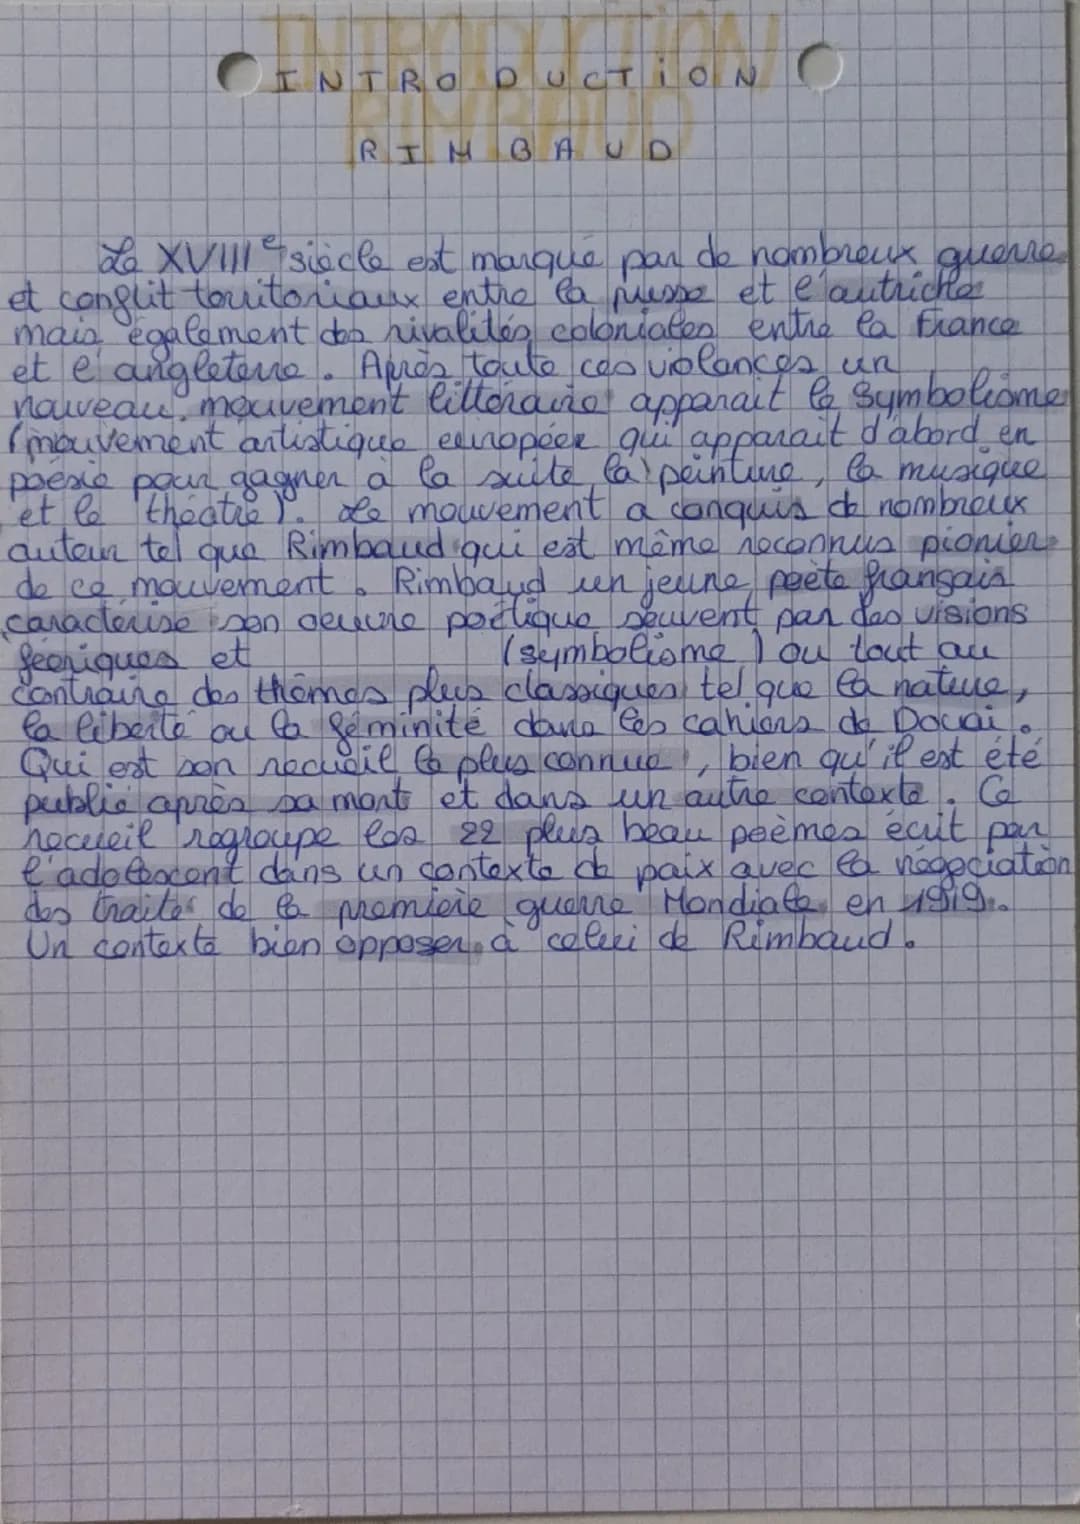 INTRODUCTION
RIMBAUD
Le XVIIIe siècle est marqué par de nombreux guerre
et conflit territoriaux entre la prusse et l'autriche
mais également des rivalités coloniales entre la France
et l'angleterre. Après toute ces violences un
nouveau mouvement littéraire apparait le Symbolisme
(mouvement artistique européen qui apparait d'abord en
poésie pour gagner à la suite la peinture, la musique
et le théatre). Le mouvement a conquis de nombreux
auteur tel que Rimbaud qui est même reconnus pionier
de ce mouvement. Rimbaud un jeune poète français
caractérise son oeuvre poétique souvent par des visions
féeriques et (symbolisme) ou tout au
contraire des thèmes plus classiques tel que la nature,
la liberté ou la féminité dans les cahiers de Douai.
Qui est son recueil le plus connue, bien qu'il est été
publié après sa mort et dans un autre contexte. Ce
recueil regroupe les 22 plus beau poèmes écrit par
l'adolescent dans un contexte de paix avec la négociation
des traités de la première guerre Mondiale en 1919.
Un contexte bien opposer à celui de Rimbaud.